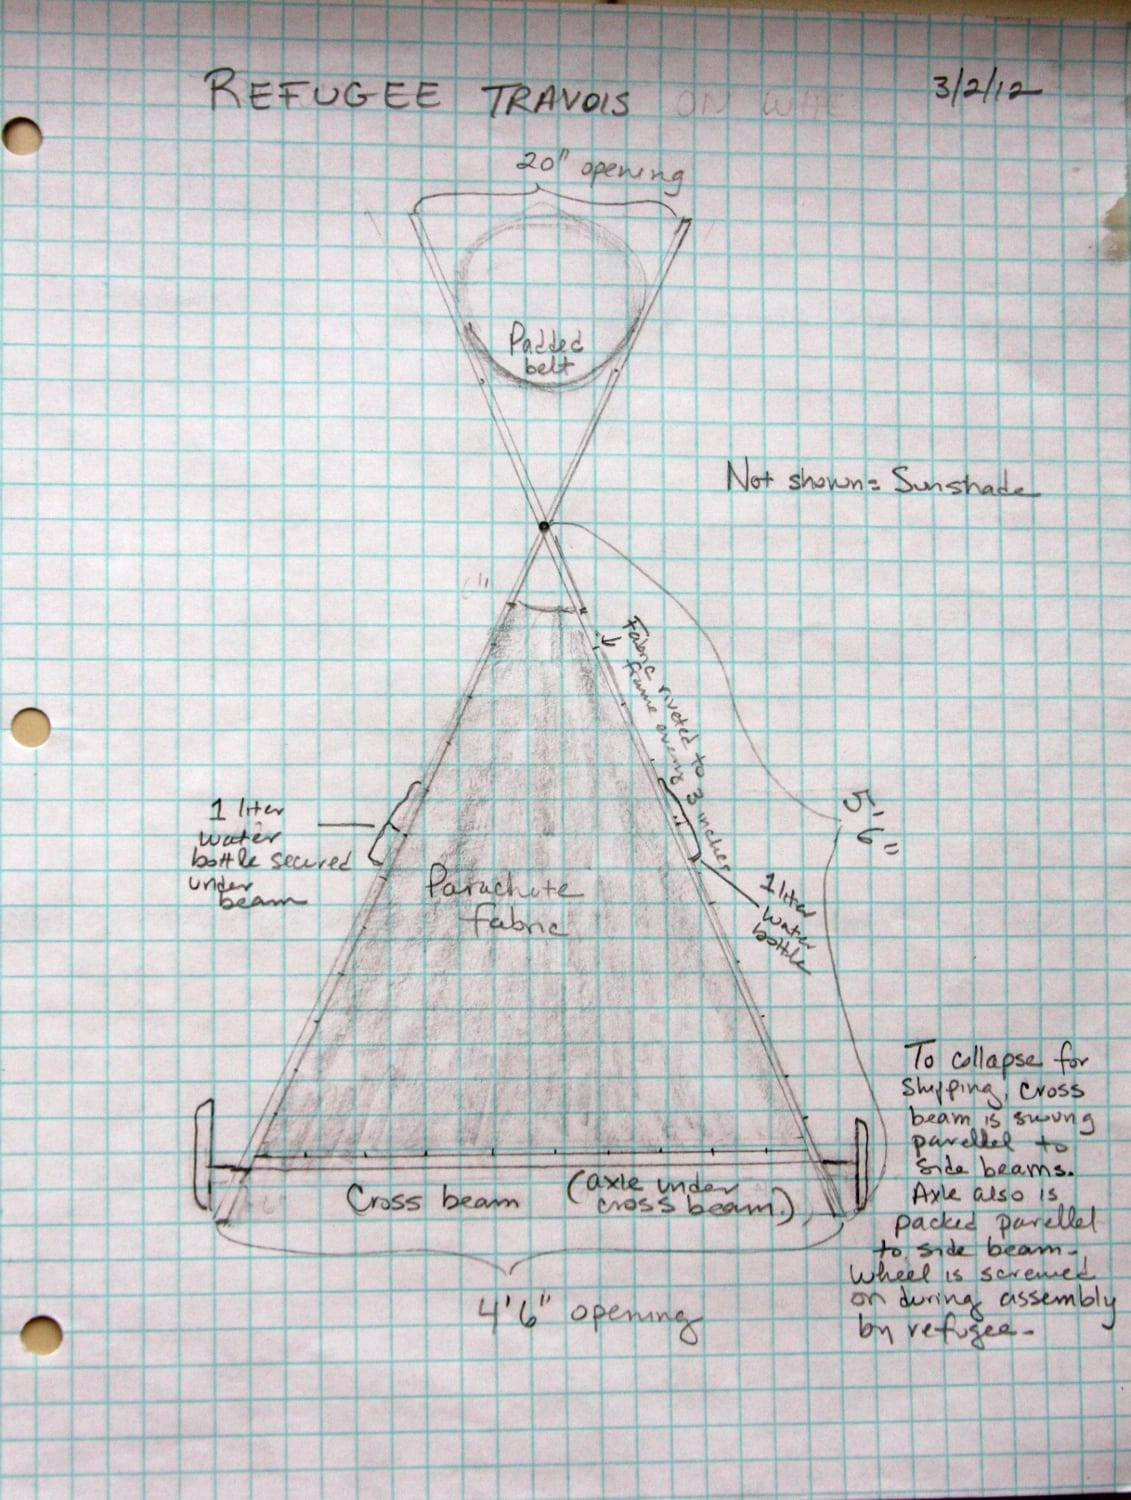 REFUGEE TRAVOIS ON WHE
3/2/12
20" opening
Padded
belt
Not shown = Sunshade
6"
Fabric riveted to
frame every 3 inches
5'6"
1 liter
water
bottle secured
under
beam
Parachute
fabric
1 liter
water
bottle
To collapse for
shipping, cross
beam is swung
parellel to
side beams.
Axle also is
packed parellel
to side beam.
Wheel is screwed
on during assembly
by refugee.
Cross beam
(axle under
cross beam.)
4'6" opening